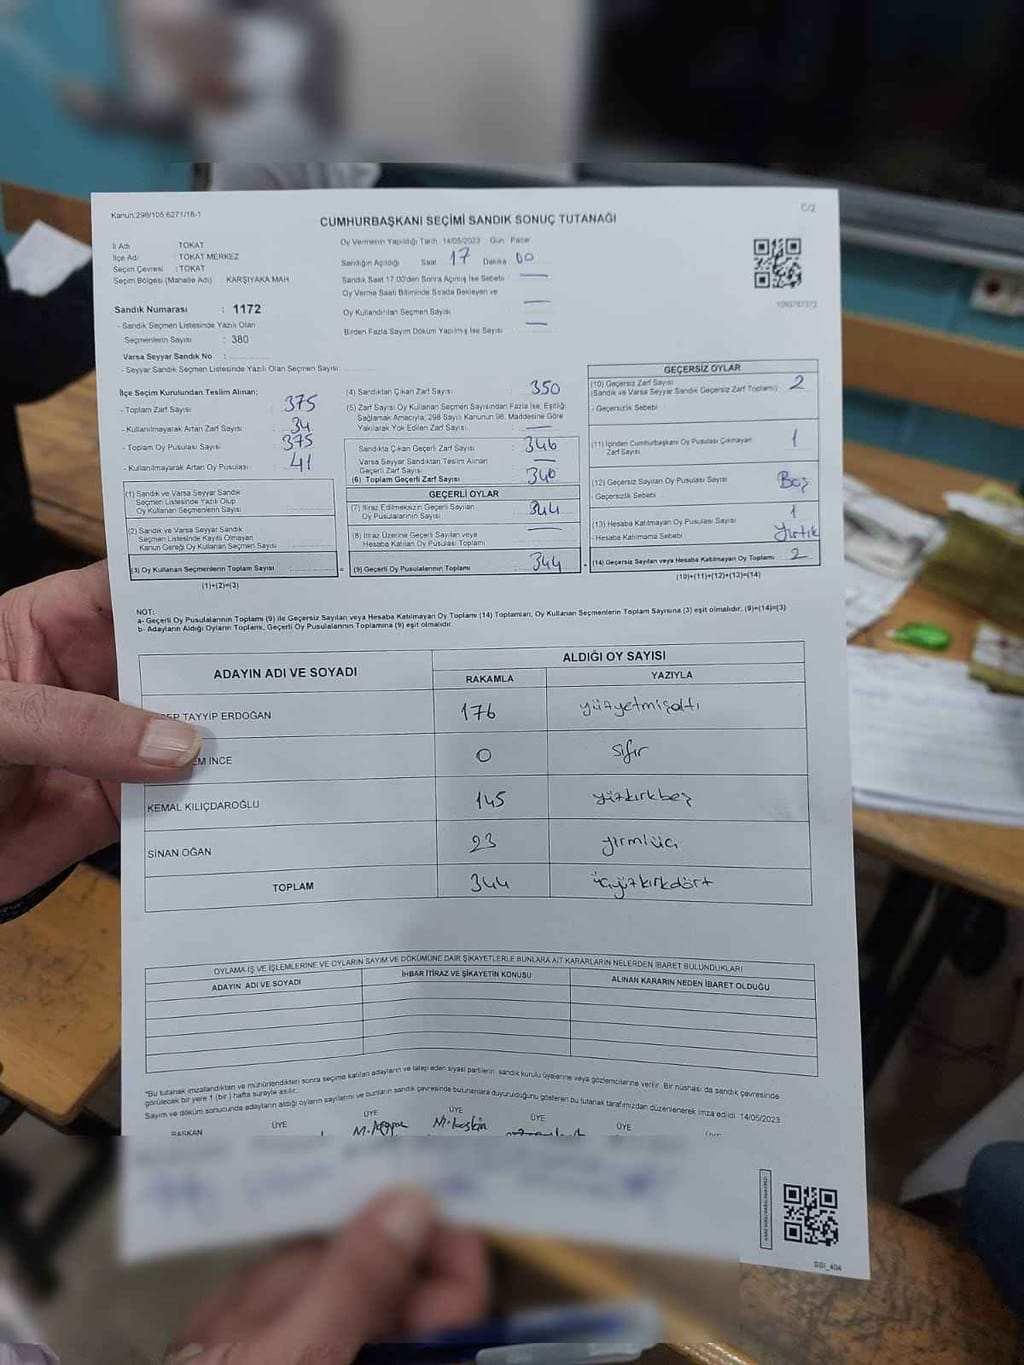 Kanun.298/105;6271/18-1
C/2
CUMHURBAŞKANI SEÇİMİ SANDIK SONUÇ TUTANAĞI
İl Adı : TOKAT
İlçe Adı : TOKAT MERKEZ
Seçim Çevresi : TOKAT
Seçim Bölgesi (Mahalle Adı) KARŞIYAKA MAH
Oy Vermenin Yapıldığı Tarih :14/05/2023 Gün: Pazar
Sandığın Açıldığı Saat 17 Dakika 00
Sandık Saat 17:00'den Sonra Açılmış İse Sebebi
Oy Verme Saati Bitiminde Sırada Bekleyen ve
Oy Kullandırılan Seçmen Sayısı
Birden Fazla Sayım Döküm Yapılmış İse Sayısı
Sandık Numarası : 1172
- Sandık Seçmen Listesinde Yazılı Olan
Seçmenlerin Sayısı : 380
Varsa Seyyar Sandık No :
- Seyyar Sandık Seçmen Listesinde Yazılı Olan Seçmen Sayısı:
İlçe Seçim Kurulundan Teslim Alınan;
- Toplam Zarf Sayısı : 375
- Kullanılmayarak Artan Zarf Sayısı : 34
- Toplam Oy Pusulası Sayısı : 375
- Kullanılmayarak Artan Oy Pusulası : 41
(1) Sandık ve Varsa Seyyar Sandık
Seçmen Listesinde Yazılı Olup
Oy Kullanan Seçmenlerin Sayısı
(2) Sandık ve Varsa Seyyar Sandık
Seçmen Listesinde Kayıtlı Olmayan
Kanun Gereği Oy Kullanan Seçmen Sayısı
(3) Oy Kullanan Seçmenlerin Toplam Sayısı
(1)+(2)=(3)
(4) Sandıktan Çıkan Zarf Sayısı : 350
(5) Zarf Sayısı Oy Kullanan Seçmen Sayısından Fazla İse, Eşitliği
Sağlamak Amacıyla, 298 Sayılı Kanunun 98. Maddesine Göre
Yakılarak Yok Edilen Zarf Sayısı
Sandıkta Çıkan Geçerli Zarf Sayısı : 346
Varsa Seyyar Sandıktan Teslim Alınan
Geçerli Zarf Sayısı
(6) Toplam Geçerli Zarf Sayısı : 346
GEÇERLİ OYLAR
(7) İtiraz Edilmeksizin Geçerli Sayılan
Oy Pusulalarının Sayısı 344
(8) İtiraz Üzerine Geçerli Sayılan veya
Hesaba Katılan Oy Pusulası Toplamı
(9) Geçerli Oy Pusulalarının Toplamı 344
GEÇERSİZ OYLAR
(10) Geçersiz Zarf Sayısı
(Sandık ve Varsa Seyyar Sandık Geçersiz Zarf Toplamı) : 2
- Geçersizlik Sebebi
(11) İçinden Cumhurbaşkanı Oy Pusulası Çıkmayan
Zarf Sayısı 1
(12) Geçersiz Sayılan Oy Pusulası Sayısı
- Geçersizlik Sebebi Boş
(13) Hesaba Katılmayan Oy Pusulası Sayısı 1
- Hesaba Katılmama Sebebi Yırtık
(14) Geçersiz Sayılan veya Hesaba Katılmayan Oy Toplamı 2
(10)+(11)+(12)+(13)=(14)
NOT:
a- Geçerli Oy Pusulalarının Toplamı (9) ile Geçersiz Sayılan veya Hesaba Katılmayan Oy Toplamı (14) Toplamları, Oy Kullanan Seçmenlerin Toplam Sayısına (3) eşit olmalıdır. (9)+(14)=(3)
b- Adayların Aldığı Oyların Toplamı, Geçerli Oy Pusulalarının Toplamına (9) eşit olmalıdır.
ADAYIN ADI VE SOYADI
ALDIĞI OY SAYISI
RAKAMLA YAZIYLA
TAYYİP ERDOĞAN 176 yüzyetmişaltı
İNCE 0 sıfır
KEMAL KILIÇDAROĞLU 145 yüzkırkbeş
SİNAN OĞAN 23 yirmiüç
TOPLAM 344 üçyüzkırkdört
OYLAMA İŞ VE İŞLEMLERİNE VE OYLARIN SAYIM VE DÖKÜMÜNE DAİR ŞİKAYETLERLE BUNLARA AİT KARARLARIN NELERDEN İBARET BULUNDUKLARI
ADAYIN ADI VE SOYADI
İHBAR İTİRAZ VE ŞİKAYETİN KONUSU
ALINAN KARARIN NEDEN İBARET OLDUĞU
"Bu tutanak imzalandıktan ve mühürlendikten sonra seçime katılan adayların ve talep eden siyasi partilerin sandık kurulu üyelerine veya gözlemcilerine verilir. Bir nüshası da sandık çevresinde
görülecek bir yere 1 (bir) hafta süreyle asılır.
Sayım ve döküm sonucunda adayların aldığı oyların sayılarını ve bunların sandık çevresinde bulunanlara duyurulduğunu gösteren bu tutanak tarafımızdan düzenlenerek imza edildi. 14/05/2023
BAŞKAN ÜYE ÜYE ÜYE ÜYE ÜYE
M.keskin
SSI_404